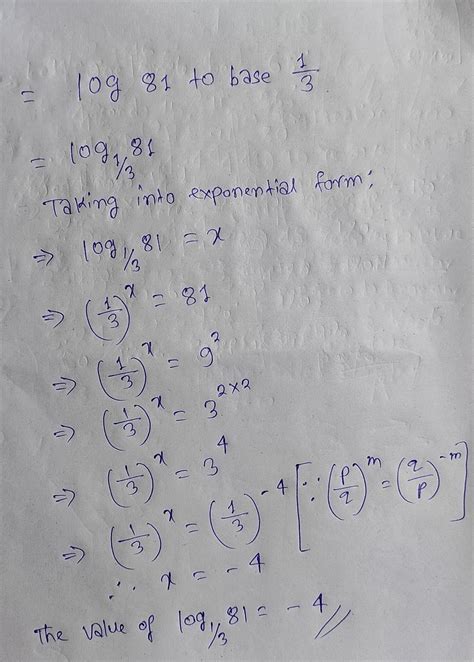 = log 81 to base 1/3
= log_{1/3} 81
Taking into exponential form;
⇒ log_{1/3} 81 = x
⇒ (1/3)^x = 81
⇒ (1/3)^x = 9^2
⇒ (1/3)^x = 3^{2×2}
⇒ (1/3)^x = 3^4
⇒ (1/3)^x = (1/3)^{-4} [∵ (p/q)^m = (q/p)^{-m}]
∴ x = -4
The value of log_{1/3} 81 = -4 //